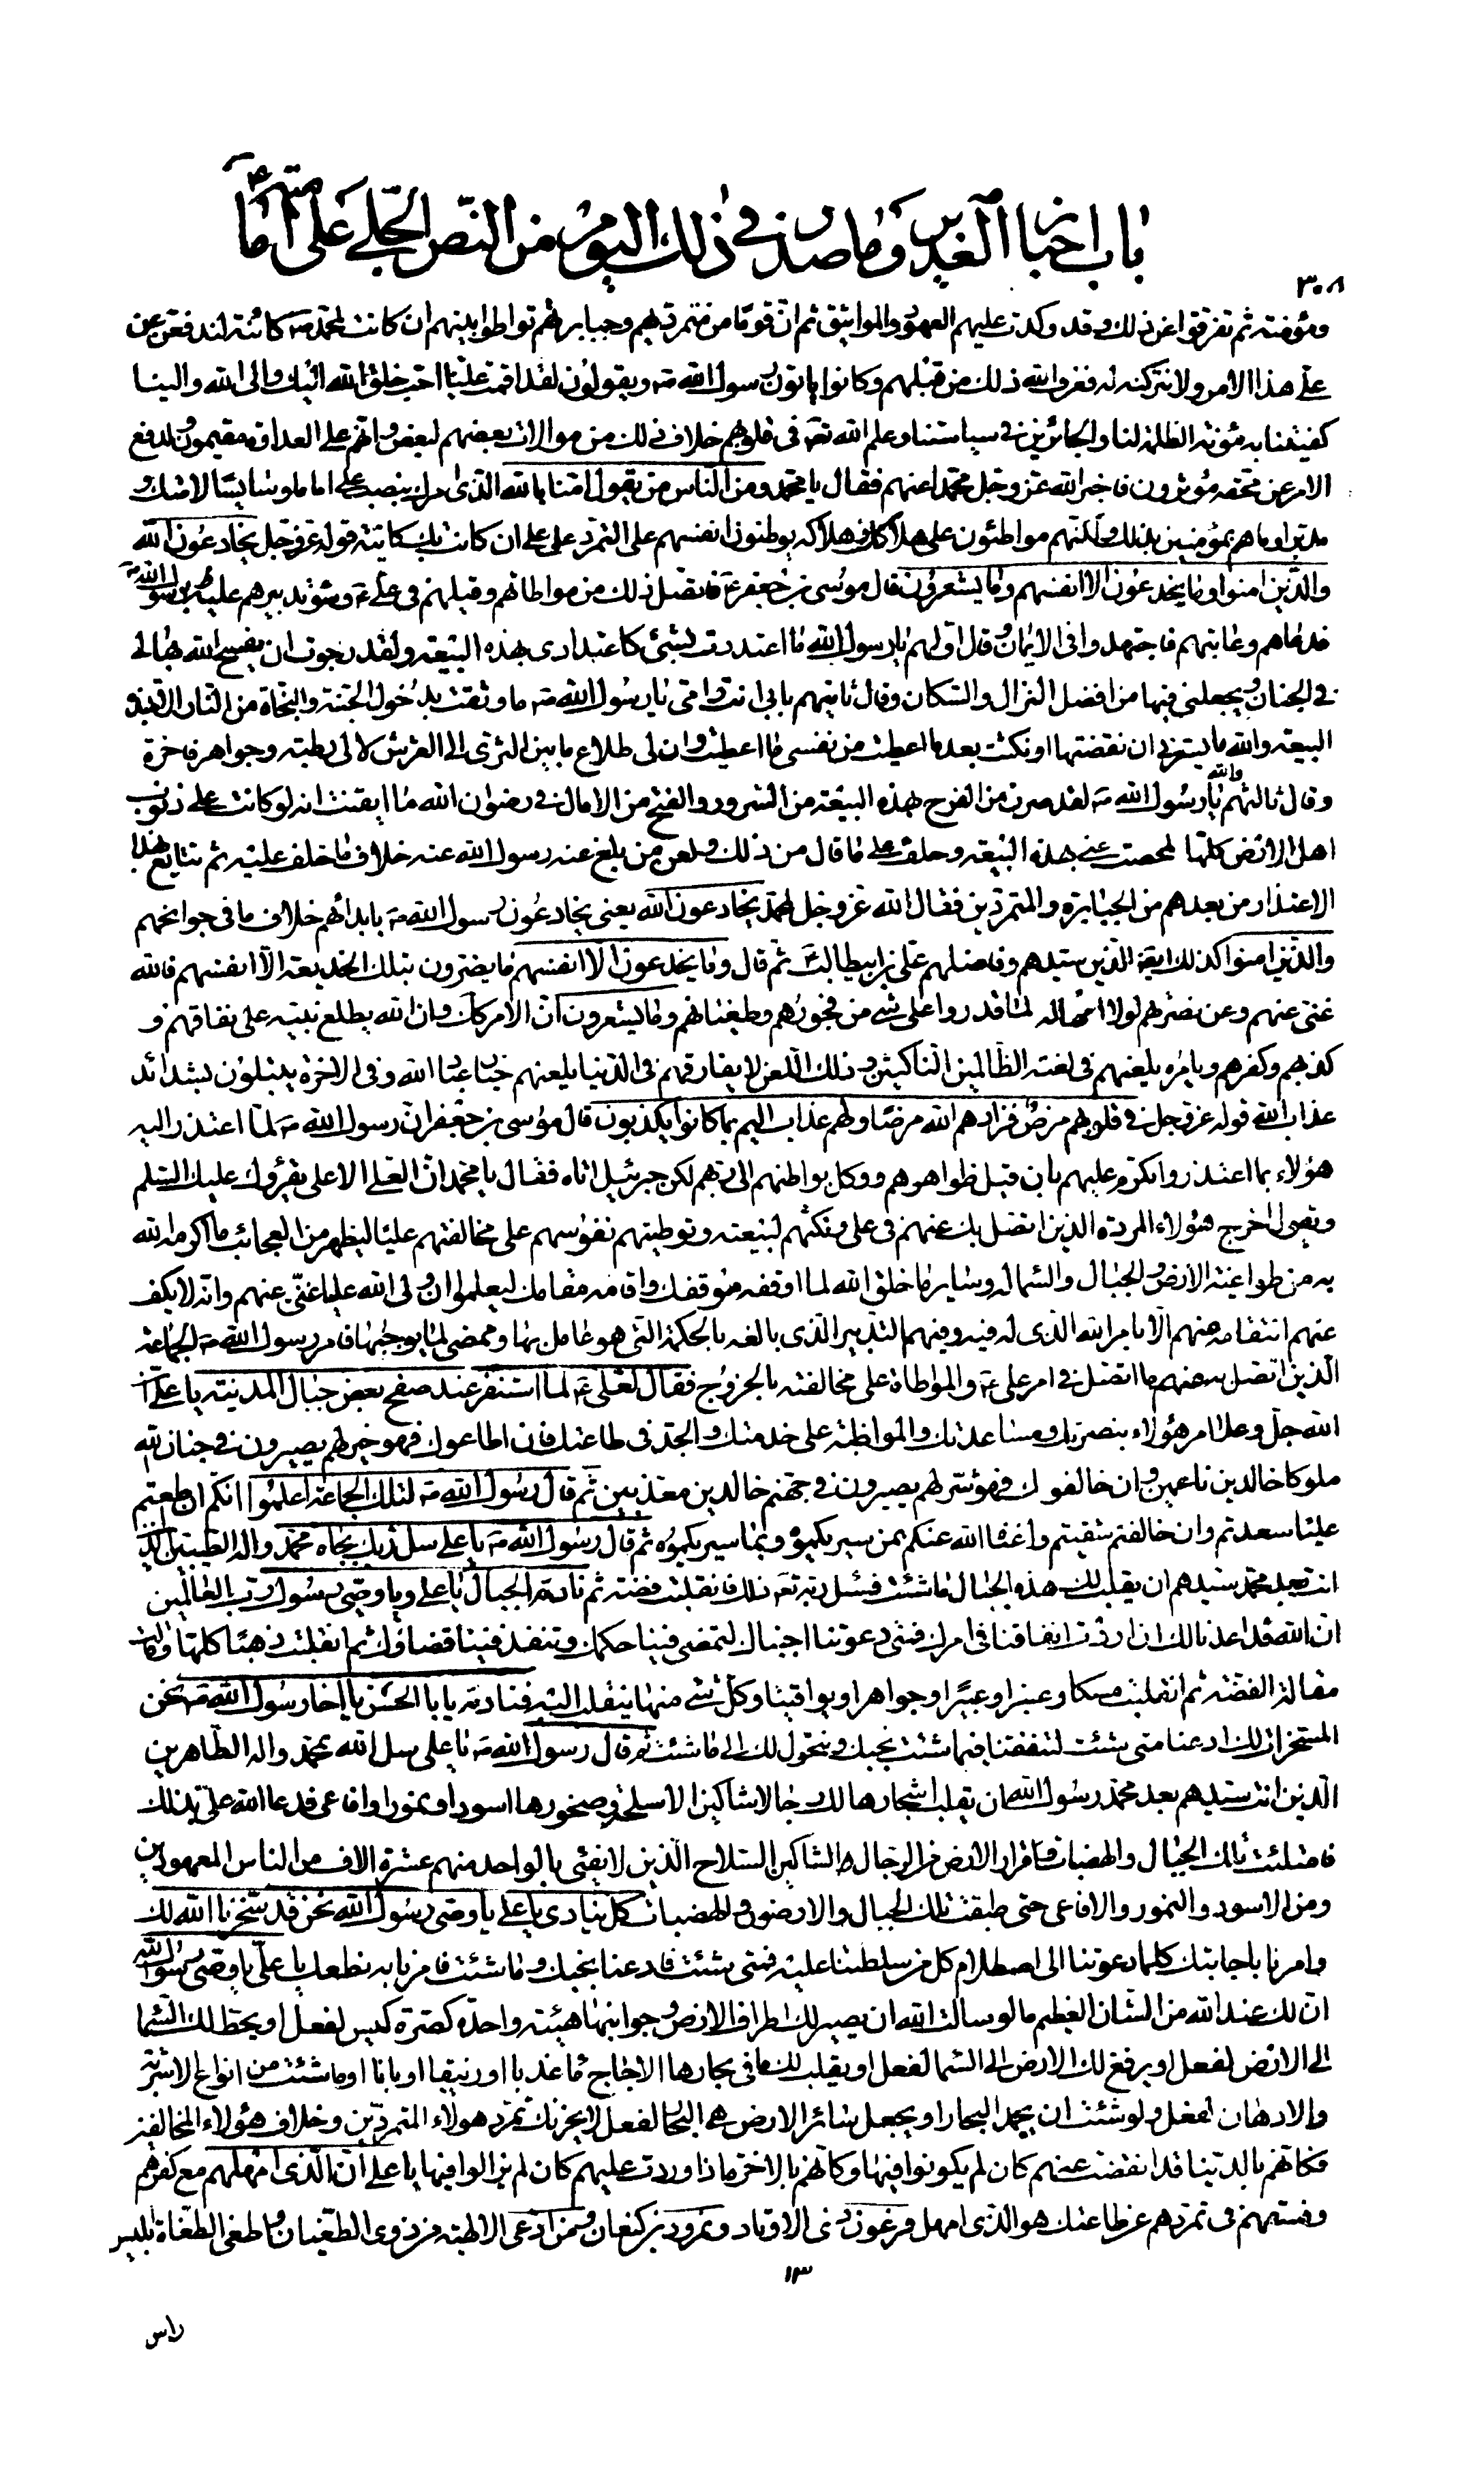 باب اخبار الغدير وما صدر في ذلك اليوم من النص الجلي على امامته ع
٣٠٨
ومؤمنة ثم تفرقوا عن ذلك وقد وكدت عليهم العهود والمواثيق ثم ان قوما من متمرديهم وجبابرتهم تواطوا بينهم ان كانت لمحمد ص كائنة لندفعن عن
علي هذا الامر ولا نتركنه له فعرف الله ذلك من قبلهم وكانوا ياتون رسول الله ص ويقولون لقد اقمت علينا احب خلق الله اليك والى الله والينا
كفيتنا به مؤنة الظلمة لنا والجائرين في سياستنا وعلم الله تعه في قلوبهم خلاف ذلك من موالات بعضهم لبعض وانهم على العداوة مقيمون ولدفع
الامر عن محقه مؤثرون فاخبر الله عز وجل محمدا عنهم فقال يا محمد ومن الناس من يقول امنا بالله الذي امرك بنصب علي اماما وسايسا لامتك و
مدبرا وما هم بمؤمنين بذلك ولكنهم مواطئون على هلاكك وهلاكه يوطنون انفسهم على التمرد على علي ان كانت بك كائنة قوله عز وجل يخادعون الله
والذين امنوا وما يخدعون الا انفسهم وما يشعرون قال موسى بن جعفر ع فاتصل ذلك من مواطاتهم وقيلهم في علي ع وسوء تدبيرهم عليه برسول الله ص
فدعاهم وعاتبهم فاجتهدوا في الايمان وقال اولهم يا رسول الله ما اعتددت بشئ كاعتدادي بهذه البيعة ولقد رجوت ان يفسح الله بها لي
في الجنان ويجعلني فيها من افضل النزال والسكان وقال ثانيهم بابي انت وامي يا رسول الله ص ما وثقت بدخول الجنة والنجاة من النار الا بهذه
البيعة والله ما يسرني ان نقضتها او نكثت بعد ما اعطيت من نفسي ما اعطيت وان لي طلاع ما بين الثرى الى العرش لالي رطبة وجواهر فاخرة
وقال ثالثهم والله يا رسول الله ص لقد صرت من الفرح بهذه البيعة من السرور والفتح من الامال في رضوان الله ما ايقنت انه لو كانت علي ذنوب
اهل الارض كلها لمحصت عني بهذه البيعة وحلف على ما قال من ذلك ولعن من بلغ عنه رسول الله عنه خلاف ما حلف عليه ثم تتابع بهذا
الاعتذار من بعدهم من الجبابرة والمتمردين فقال الله عز وجل لمحمد يخادعون الله يعني يخادعون رسول الله ص بابدائهم خلاف ما في جوانحهم
والذين امنوا كذلك ايضا الذين سيدهم وفاضلهم علي بن ابيطالب ع ثم قال وما يخدعون الا انفسهم ما يضرون بتلك الخديعة الا انفسهم فالله
غني عنهم وعن نصرتهم لولا امهاله لما قدروا على شئ من فجورهم وطغيانهم وما يشعرون ان الامر كك وان الله يطلع نبيه على نفاقهم و
كذبهم وكفرهم ويامره بلعنهم في لعنة الظالمين الناكثين وذلك اللعن لا يفارقهم في الدنيا يلعنهم خيار عباد الله وفي الاخرة يبتلون بشدائد
عذاب الله قوله عز وجل في قلوبهم مرض فزادهم الله مرضا ولهم عذاب اليم بما كانوا يكذبون قال موسى بن جعفر ان رسول الله ص لما اعتذر اليه
هؤلاء بما اعتذروا تكرم عليهم بان قبل ظواهرهم ووكل بواطنهم الى ربهم لكن جبرئيل اتاه فقال يا محمد ان العلي الاعلى يقرؤك عليك السلم
ويقول اخرج هؤلاء المردة الذين اتصل بك عنهم في علي ونكثهم لبيعته وتوطينهم نفوسهم على مخالفتهم عليا ليظهر من العجائب ما اكرمه الله
به من طواعية الارض والجبال والسماء له وساير ما خلق الله لما اوقفه موقفك واقامه مقامك ليعلموا ان ولي الله عليا غني عنهم وانه لا يكف
عنهم انتقامه منهم الا بامر الله الذي له فيه وفيهم التدبير الذي بالغه بالحكمة التي هو عامل بها وممضي لما يوجبها فامر رسول الله ص الجماعة
الذين اتصل به عنهم ما اتصل في امر علي ع والمواطاة على مخالفته بالخروج فقال لعلي ع لما استنفر عند صفح بعض جبال المدينة يا علي ان
الله جل وعلا امر هؤلاء بنصرتك ومساعدتك والمواظبة على خدمتك والجد في طاعتك فان اطاعوك فهو خير لهم يصيرون في جنان الله
ملوكا خالدين ناعمين وان خالفوك فهو شر لهم يصيرون في جهنم خالدين معذبين ثم قال رسول الله ص لتلك الجماعة اعلموا انكم ان اطعتم
عليا سعدتم وان خالفتم شقيتم واغناه الله عنكم بمن سيريكموه وبما سيريكموه ثم قال رسول الله ص يا علي سل ربك بجاه محمد واله الطيبين الذين
انت بعد محمد سيدهم ان يقلب لك هذه الجبال ما شئت فسئل ربه تعه ذلك فانقلبت فضة ثم نادته الجبال يا علي ويا وصي رسول رب العالمين
ان الله قد اعدنا لك ان اردت انفاقنا في امرك فمتى دعوتنا اجبناك لتمضي فينا حكمك وتنفذ فينا قضاؤك ثم انقلبت ذهبا كلها وقالت
مقالة الفضة ثم انقلبت مسكا وعنبرا وعبيرا وجواهر ويواقيتا وكل شئ منها ينقلب اليه فنادته يا با الحسن يا اخا رسول الله ص نحن
المسخرات لك ادعنا متى شئت لتنفقنا فيما شئت نجبك ونتحول لك الى ما شئت ثم قال رسول الله ص يا علي سل الله بمحمد واله الطاهرين
الذين انت سيدهم بعد محمد رسول الله ان يقلب اشجارها لك رجالا شاكين الاسلحة وصخورها اسودا ونمورا وافاعي فدعا الله علي بذلك
فامتلئت تلك الجبال والهضبات وقرار الارض من الرجال الشاكين السلاح الذين لا يفئ بالواحد منهم عشرة الاف من الناس المعهودين
ومن الاسود والنمور والافاعي حتى طبقت تلك الجبال والارضون والهضبات كل ينادي يا علي يا وصي رسول الله نحن قد سخرنا الله لك
وامرنا باجابتك كلما دعوتنا الى اصطلام كل من سلطتنا عليه فمتى شئت فادعنا نجبك وما شئت فامرنا به نطعك يا علي يا وصي رسول الله
ان لك عند الله من الشان العظيم ما لو سالت الله ان يصير لك اطراف الارض وجوانبها هيئة واحدة كصرة كيس لفعل او يحط لك السماء
الى الارض لفعل او يرفع لك الارض الى السماء لفعل او يقلب لك ما في بحارها الاجاج ماء عذبا او زنبقا او بانا او ما شئت من انواع الاشربة
والادهان لفعل ولو شئت ان يجمد البحار او يجعل سائر الارض هي البحار لفعل لا يحزنك تمرد هولاء المتمردين وخلاف هؤلاء المخالفين
فكانهم بالدنيا قد انقضت عنهم كان لم يكونوا فيها وكانهم بالاخرة اذا وردت عليهم كان لم يزالوا فيها يا علي ان الذي امهلهم مع كفرهم
وفسقهم في تمردهم عن طاعتك هو الذي امهل فرعون ذي الاوتاد ونمرود بن كنعان ومن ادعى الالهية من ذوي الطغيان واطغى الطغاة ابليس
١٣
راس